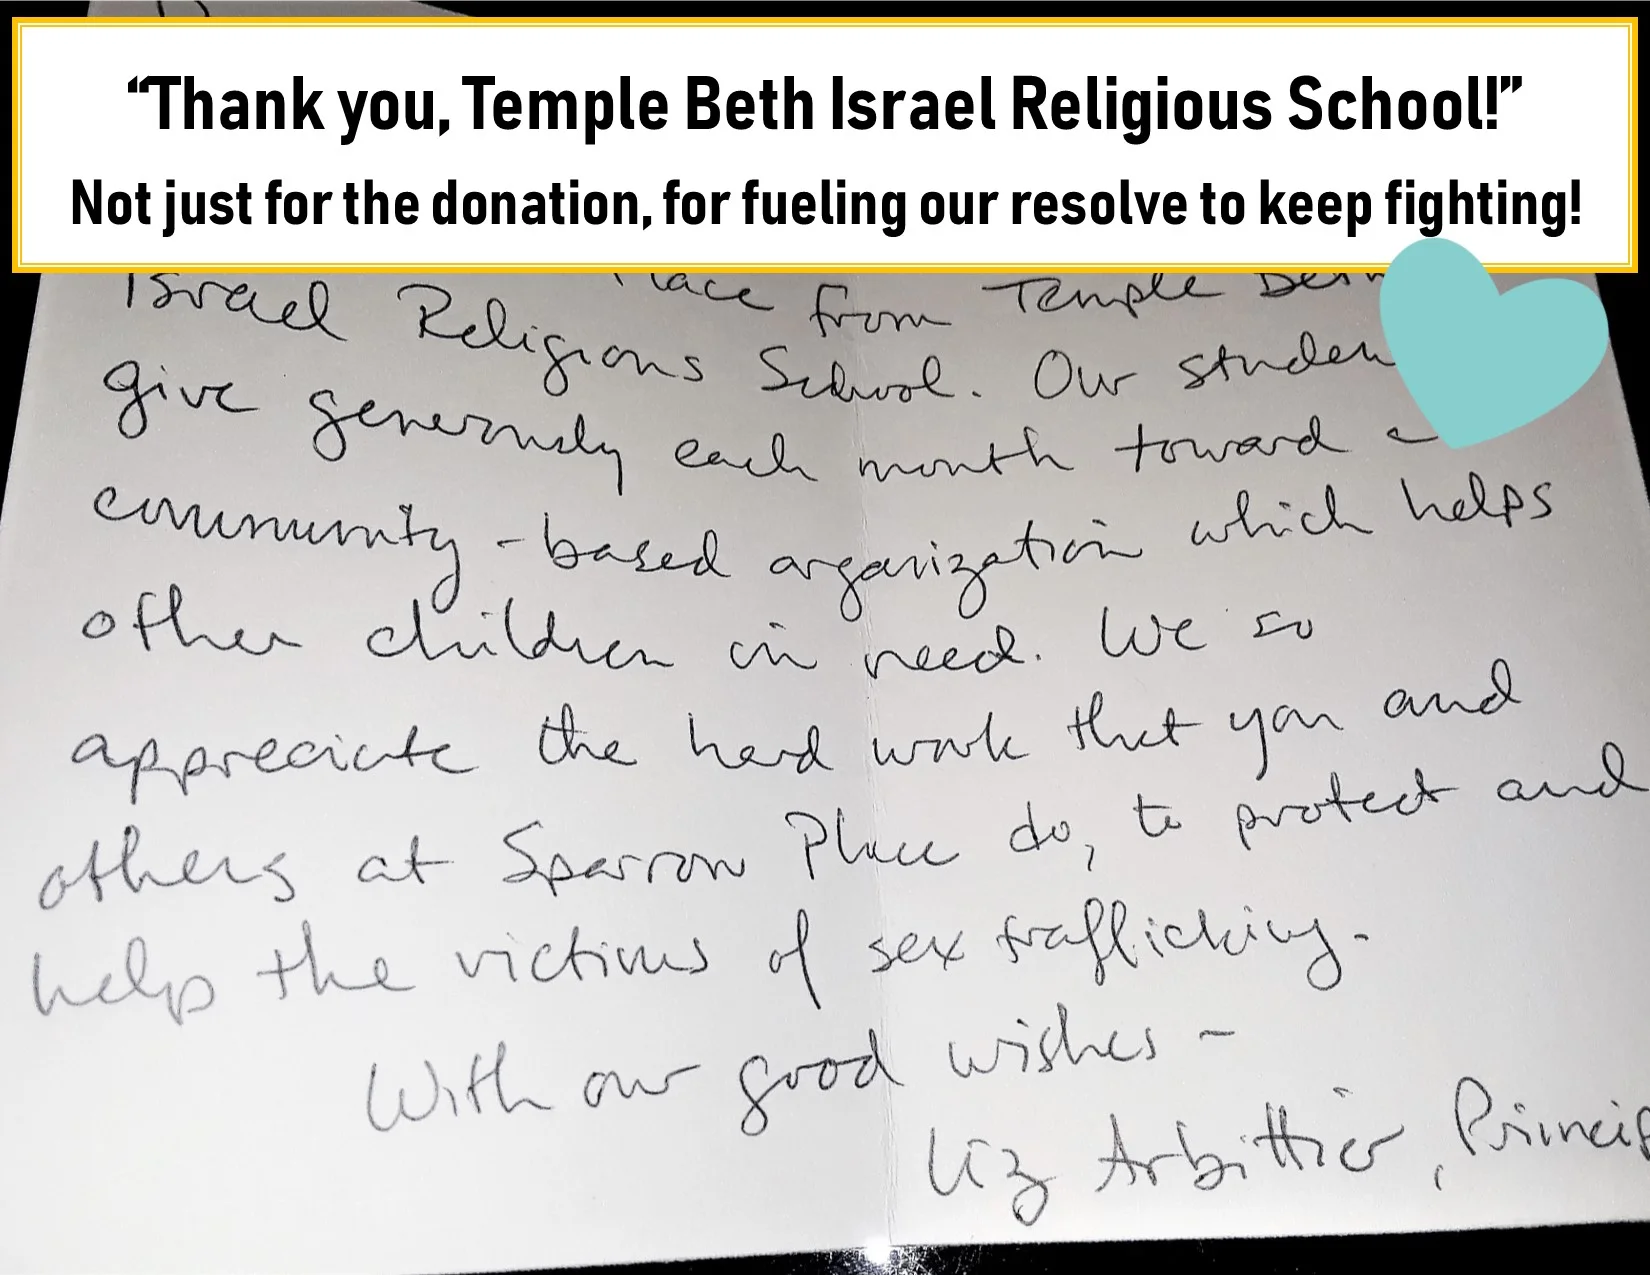 “Thank you, Temple Beth Israel Religious School!”
Not just for the donation, for fueling our resolve to keep fighting!
Place from Temple Beth
Israel Religious School. Our studen
give generously each month toward a
community-based organization which helps
other children in need. We so
appreciate the hard work that you and
others at Sparrow Place do, to protect and
help the victims of sex trafficking.
With our good wishes -
Liz Arbittier, Princip